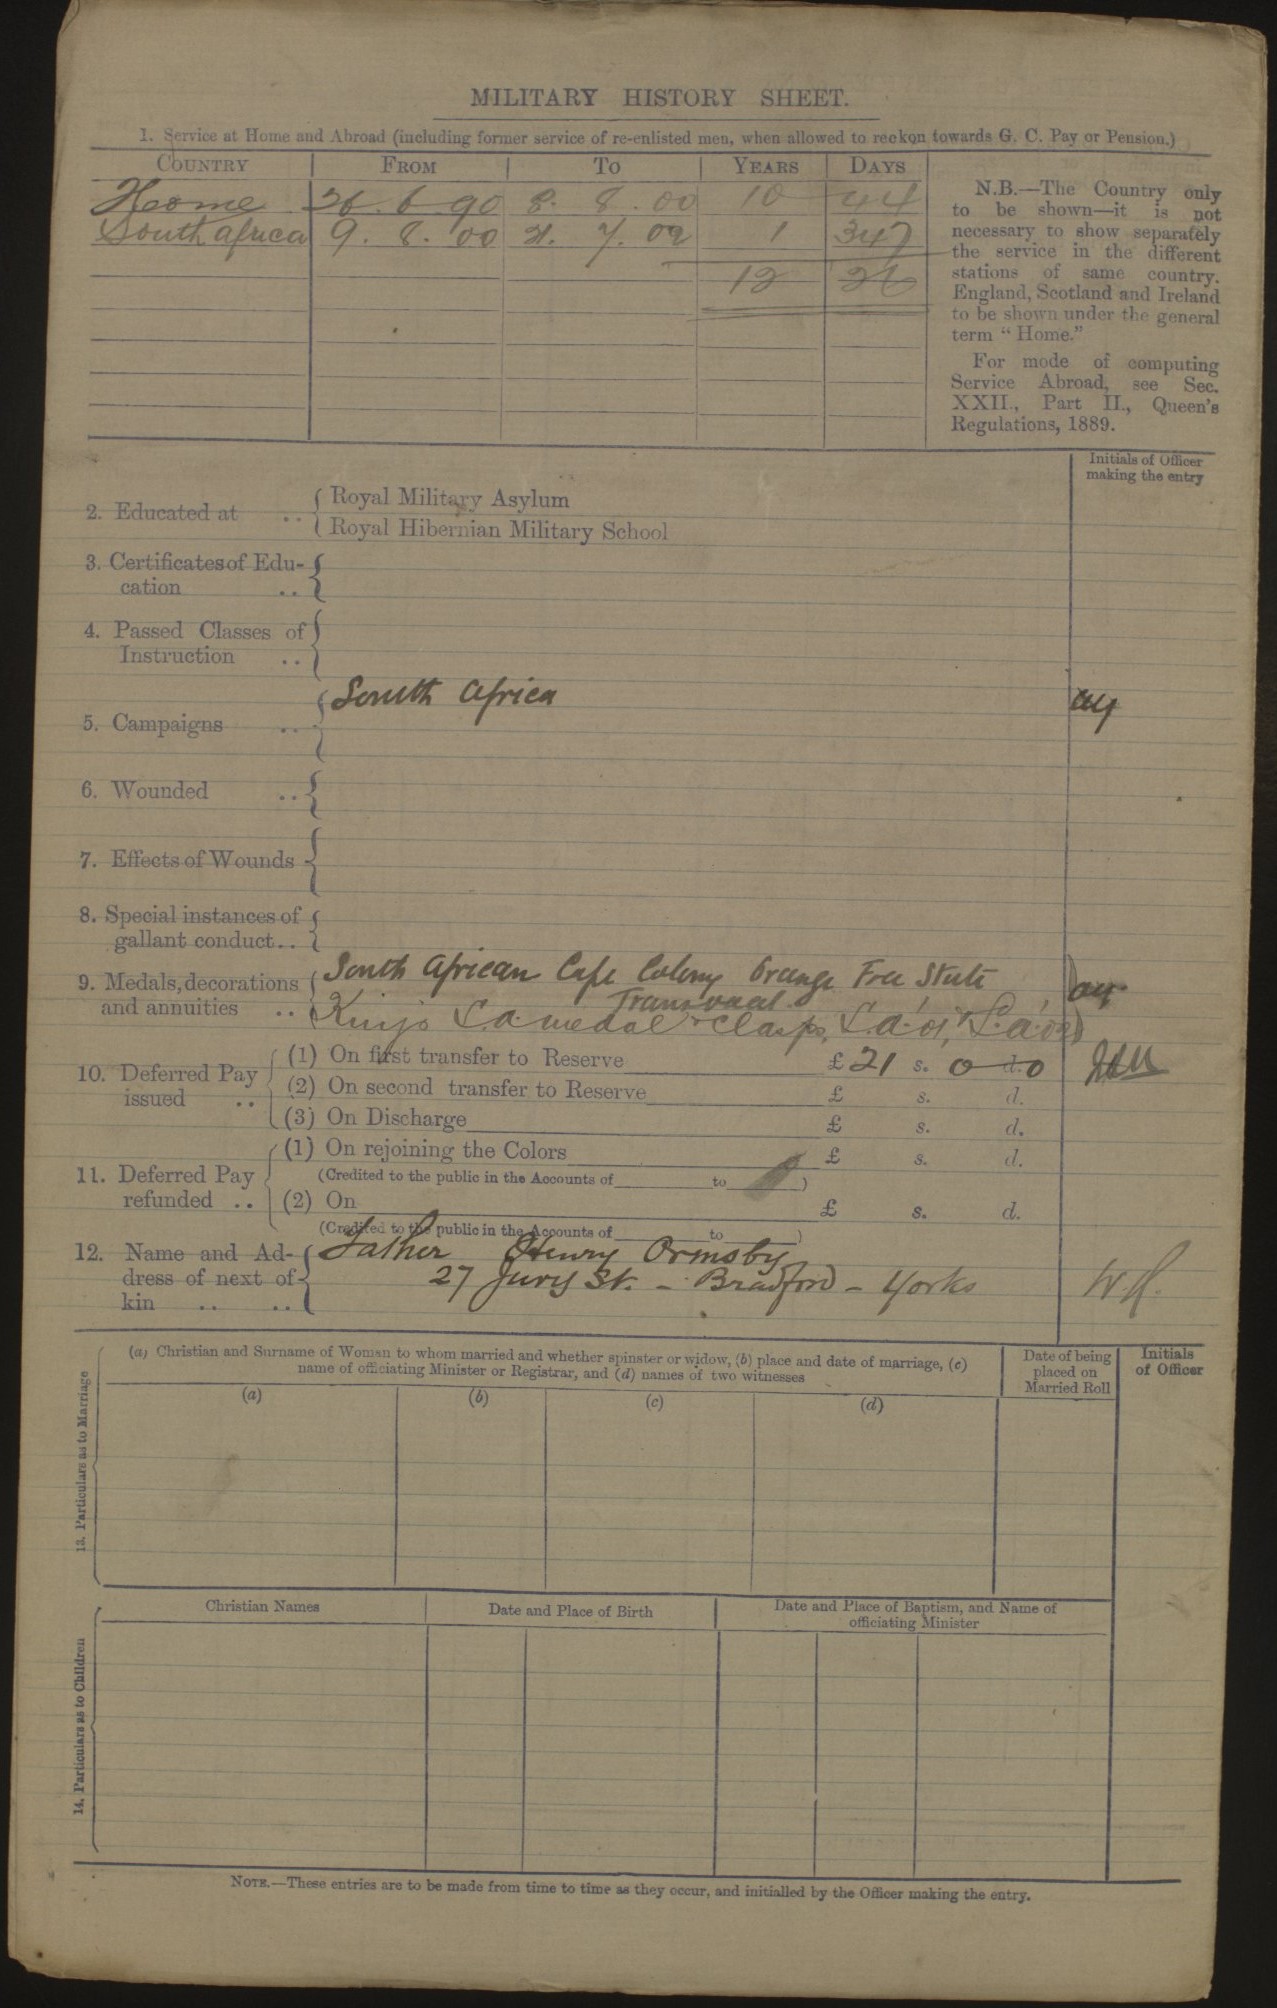 MILITARY HISTORY SHEET.
1. Service at Home and Abroad (including former service of re-enlisted men, when allowed to reckon towards G. C. Pay or Pension.)
COUNTRY FROM TO YEARS DAYS
Home 26. 6. 90 8. 8. 00 10 44
South Africa 9. 8. 00 21. 7. 02 1 347
12 26
N.B.—The Country only
to be shown—it is not
necessary to show separately
the service in the different
stations of same country.
England, Scotland and Ireland
to be shown under the general
term "Home."
For mode of computing
Service Abroad, see Sec.
XXII., Part II., Queen's
Regulations, 1889.
Initials of Officer
making the entry
2. Educated at ..
Royal Military Asylum
Royal Hibernian Military School
3. Certificates of Edu-
cation ..
4. Passed Classes of
Instruction ..
5. Campaigns .. South Africa
6. Wounded ..
7. Effects of Wounds
8. Special instances of
gallant conduct..
9. Medals, decorations
and annuities ..
South African Cape Colony Orange Free State
Transvaal
Kings S.A. medal & Clasps, S.A.'01, S.A.'02
10. Deferred Pay
issued ..
(1) On first transfer to Reserve £ 21 s. 0 d. 0
(2) On second transfer to Reserve £ s. d.
(3) On Discharge £ s. d.
11. Deferred Pay
refunded ..
(1) On rejoining the Colors £ s. d.
(Credited to the public in the Accounts of to )
(2) On £ s. d.
(Credited to the public in the Accounts of to )
12. Name and Ad-
dress of next of
kin .. ..
Father Henry Ormsby
27 St. - Bradford - Yorks
13. Particulars as to Marriage
(a) Christian and Surname of Woman to whom married and whether spinster or widow, (b) place and date of marriage, (c)
name of officiating Minister or Registrar, and (d) names of two witnesses
Date of being
placed on
Married Roll
Initials
of Officer
(a) (b) (c) (d)
14. Particulars as to Children
Christian Names Date and Place of Birth Date and Place of Baptism, and Name of
officiating Minister
NOTE.—These entries are to be made from time to time as they occur, and initialled by the Officer making the entry.